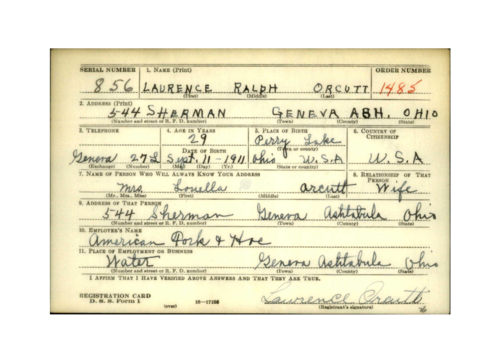 SERIAL NUMBER 1. NAME (Print) ORDER NUMBER
856 LAURENCE RALPH ORCUTT 1485
(First) (Middle) (Last)
2. ADDRESS (Print)
544 SHERMAN GENEVA ASH. OHIO
(Number and street or R. F. D. number) (Town) (County) (State)
3. TELEPHONE 4. AGE IN YEARS 5. PLACE OF BIRTH 6. COUNTRY OF CITIZENSHIP
29 Perry Lake
DATE OF BIRTH (Town or county)
Geneva Sept. 11-1911 Ohio U.S.A U.S.A
(Exchange) (Number) (Mo.) (Day) (Yr.) (State or country)
7. NAME OF PERSON WHO WILL ALWAYS KNOW YOUR ADDRESS 8. RELATIONSHIP OF THAT PERSON
Mrs Louella Orcutt Wife
(Mr., Mrs., Miss) (First) (Middle) (Last)
9. ADDRESS OF THAT PERSON
544 Sherman Geneva Ashtabula Ohio
(Number and street or R. F. D. number) (Town) (County) (State)
10. EMPLOYER'S NAME
American Fork & Hoe
11. PLACE OF EMPLOYMENT OR BUSINESS
Water Geneva Ashtabula Ohio
(Number and street or R. F. D. number) (Town) (County) (State)
I AFFIRM THAT I HAVE VERIFIED ABOVE ANSWERS AND THAT THEY ARE TRUE.
REGISTRATION CARD
D. S. S. Form 1 (over) Lawrence Orcutt
(Registrant's signature)